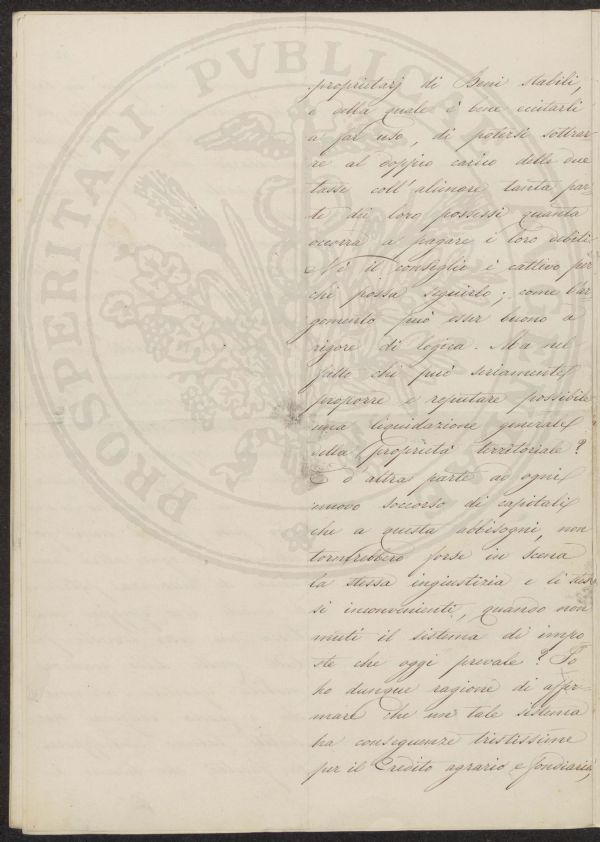 PROSPERITATI PVBLICAE
proprietarj di Beni stabili,
e della quale è bene eccitarli
a far uso, di potersi sottrar-
re al doppio carico delle due
tasse coll'alienare tanta par-
te dei loro possessi quanta
occorra a pagare i loro debiti.
Nè il consiglio è cattivo per
chi possa seguirlo; come l'ar-
gomento può esser buono a
rigore di logica. Ma nel
fatto chi può seriamente
proporre e reputare possibile
una liquidazione generale
della proprietà territoriale?
E d'altra parte ad ogni
nuovo soccorso di capitali
che a questa abbisogni, non
tornerebbero forse in scena
la stessa ingiustizia e li stes-
si inconvenienti, quando non
muti il sistema di impo
ste che oggi prevale? Io
ho dunque ragione di affer-
mare che un tale sistema
ha conseguenze tristissime
per il Credito agrario e fondiario,